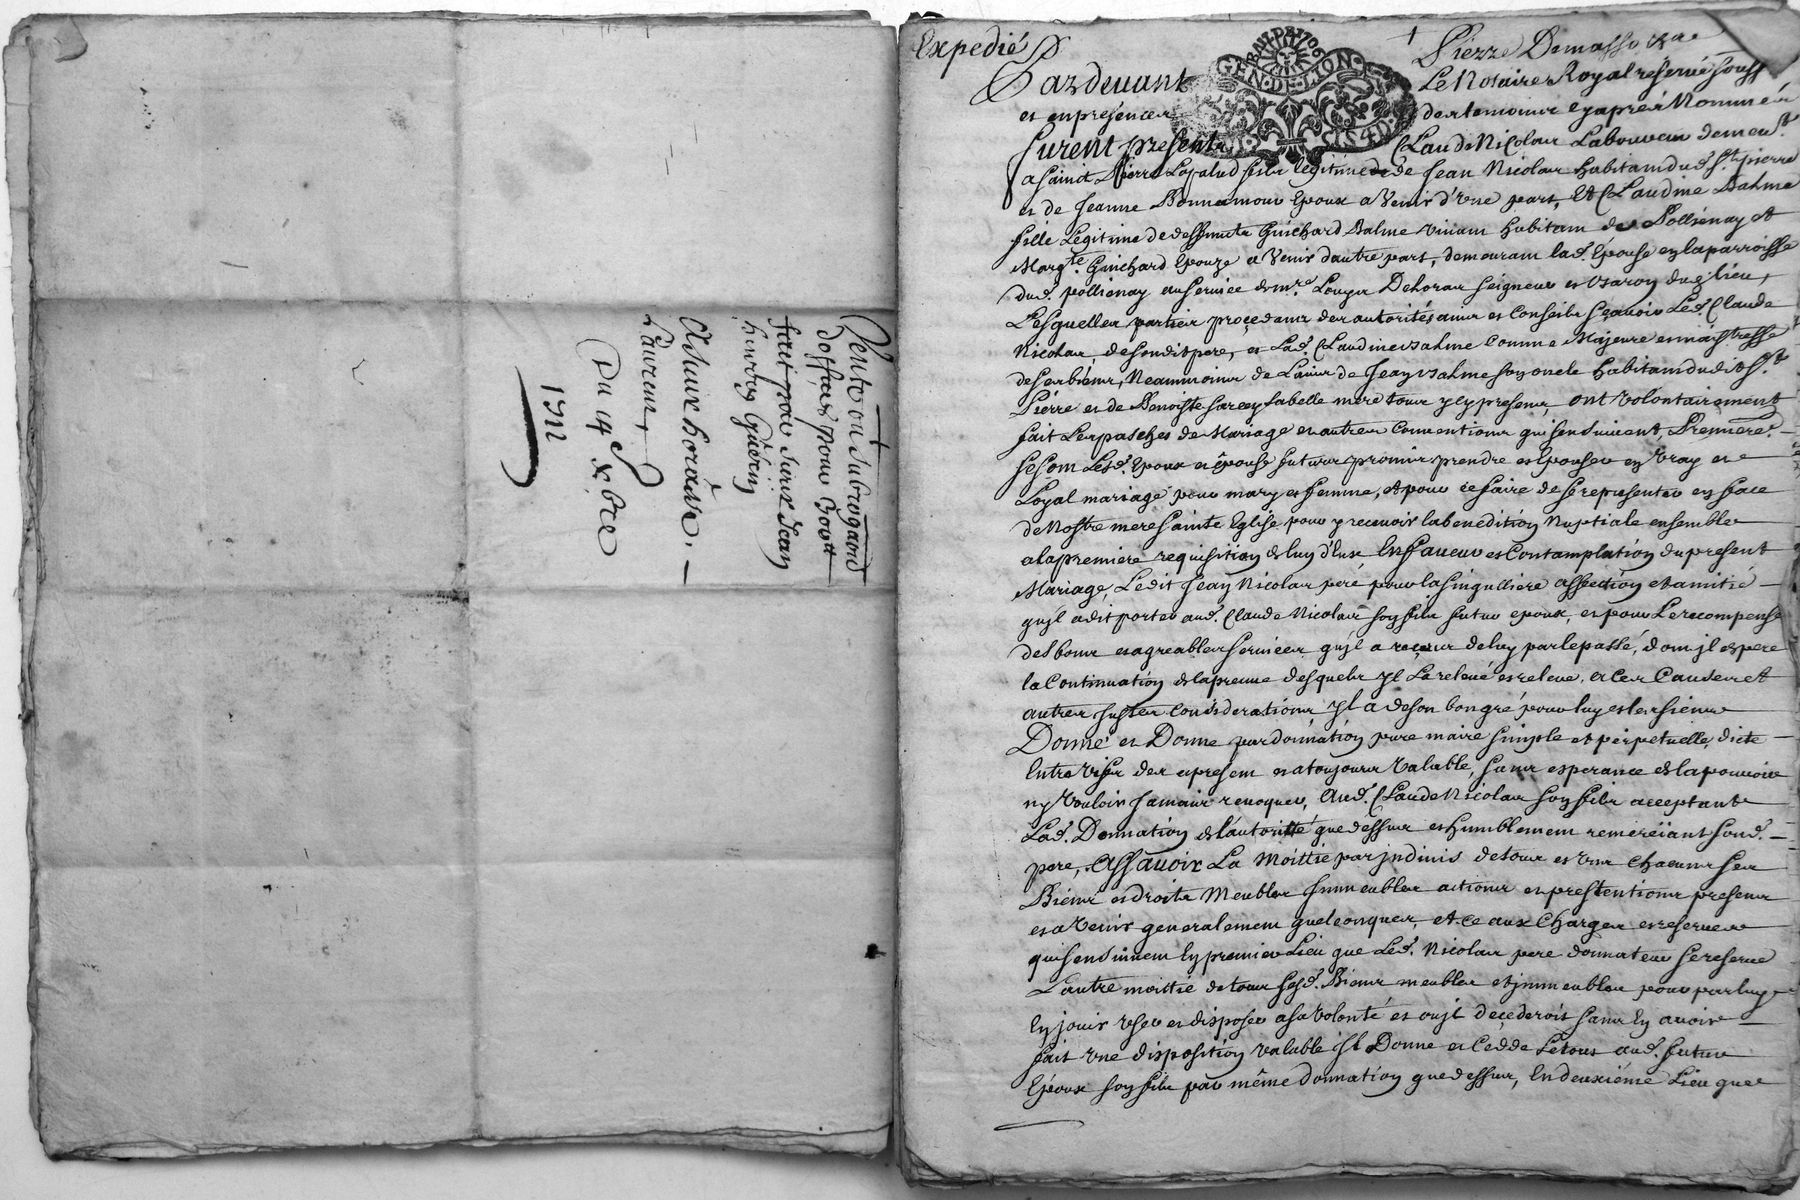 Vente ou subrogaõn
d'offices pour 300ᵗᵗ
fait par sieur Jean
Guerin
A sieur horasse
Laurent
Du 14 xbre
1712
Expedié
Pierre Demasso &a
Pardevant Le Notaire Royal reservé souss.
et en presence des temoins cy apres Nommés
furent presents Claude Nicolas Laboureur demeut.
a Sainct Pierre Lapalud fils legitime de Jean Nicolas habitant dud. St. pierre
et de Jeanne Bonnamour Epoux a Venir d'une part, Et Claudine Balme
fille Legitime de deffunts Guichard Balme vivant habitant de Pollienay et
Margte. Guichard Epouze a Venir dautre part, demourant lad. Epouse en la parroisse
dud. pollienay au service de mre. Dehorar seigneur et Baron dud. lieu,
Lesquelles parties procedans des autorités avis et Conseils scavoir Led. Claude
Nicolas, desondit pere, et Lad. Claudine Balme Comme Majeure et maistresse
de ses biens, Neammoins de Lavis de Jean Balme son oncle habitant dudit St.
Pierre et de Benoiste sa belle mere tous y cy presens, ont Volontairement
fait Les pasches de Mariage et autres Conventions qui sensuivent, Premiere.
se sont Lesd. Epoux et épouse futurs promis prendre et Epouser en Vray et
Loyal mariage pour mary et femme, et pour ce faire de se representer en face
de Nostre mere sainte Eglise pour y recevoir la benedition Nuptiale ensemble
a la premiere requisition de lun d'Eux En faveur et Contamplation du present
Mariage, Ledit Jean Nicolas pere pour la singulliere affection et amitié
qu'jl a dit porter aud. Claude Nicolas son fils futur epoux, et pour Le recompense
des bons et agreables services qu'jl a receus de luy par le passé, dont jl espere
la Continuation de la preuve desquels yl La relevé et releve, a Ces Causes et
autres justes Considerations yl a de son bon gré pour luy et les siens
Donné et Donne par donnation pure maire simple et perpetuelle, dicte
Entre Vifs des apresent et a toujours Valable, sans esperance de la pouvoir
ny Vouloir jamais revoquer, Aud. Claude Nicolas son fils acceptant
Lad. Donnation de l'autorité que dessus et humblement remerciant sond.
pere, Assavoir La Moittie par jndivis de tous et Un Chacuns ses
Biens et droits Meubles Jmmeubles actions et prestentions presens
et a Venir generalement quelconques, et ce aux Charges et reserves
qui sensuivent En premier Lieu que Led. Nicolas pere donnateur se reserve
L'autre moittie de tous sesd. Biens meubles et jmmeubles pour par luy
En jouir User et disposer a sa Volonté et ou jl decederoit sans En avoir
fait Une disposition Valable jl Donne et Cedde Le tout aud. futur
Epoux son fils par même donnation que dessus, En deuxiéme Lieu que